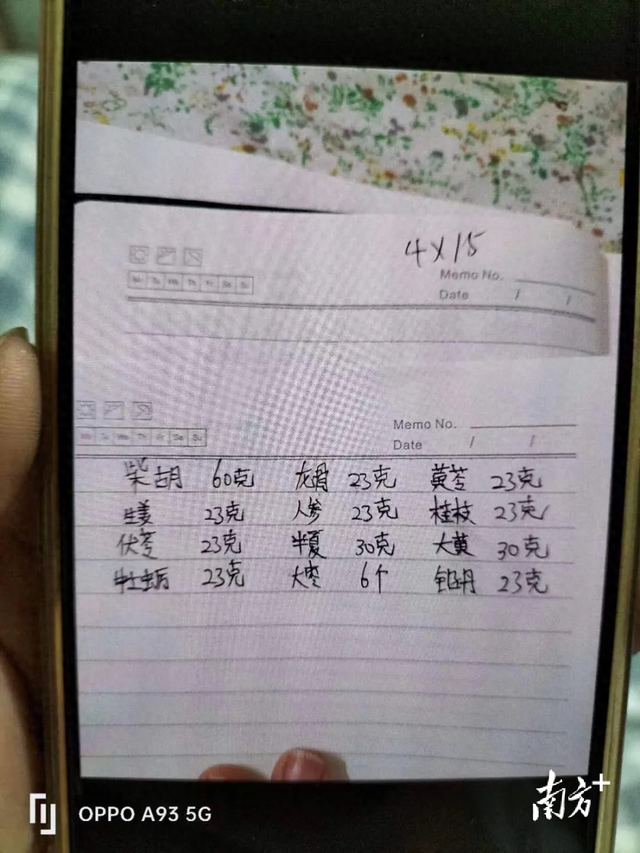 4×15
Memo No.
Date / /
Mo Tu We Th Fr Sa Su
Memo No.
Date / /
Mo Tu We Th Fr Sa Su
柴胡 60克 龙骨 23克 黄芩 23克
生姜 23克 人参 23克 桂枝 23克
伏苓 23克 半夏 30克 大黄 30克
牡蛎 23克 大枣 6个 铅丹 23克
OPPO A93 5G
南方+